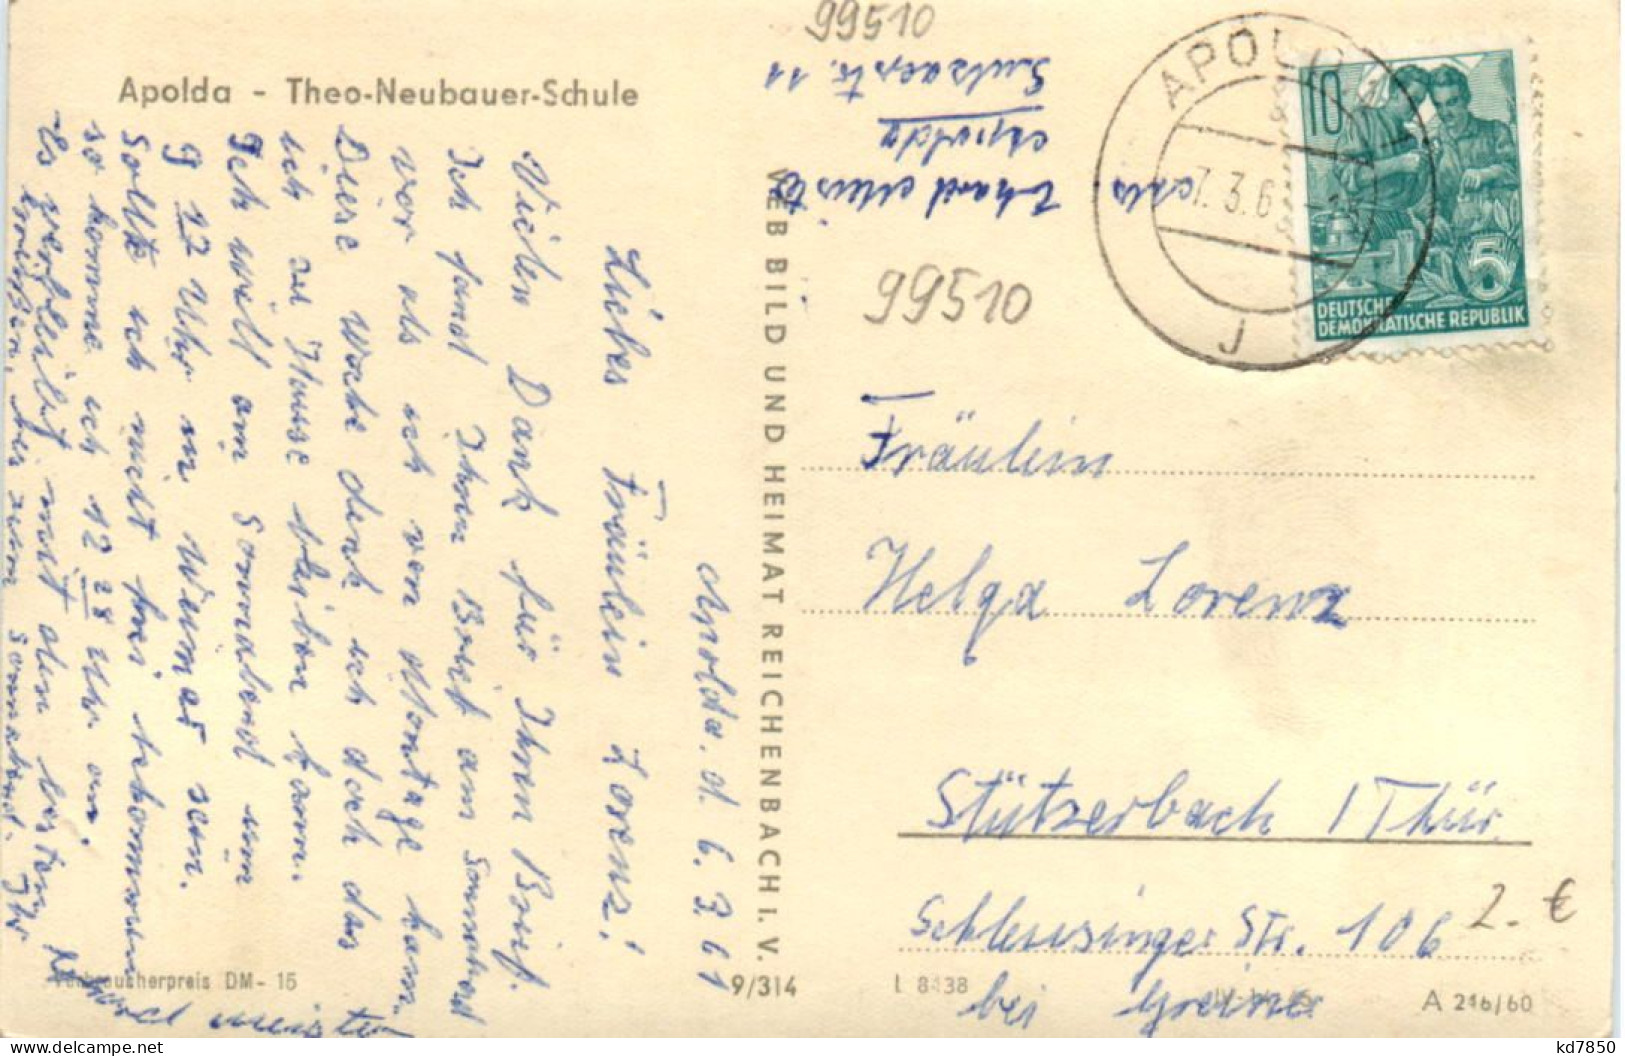 Apolda - Theo-Neubauer-Schule
Apolda. d. 6.3.61
Liebes Fräulein Lorenz!
Vielen Dank für Ihren Brief.
Ich fand Ihren Brief am Sonnabend
vor als ich von Montage kam.
Diese Woche denk ich doch das
ich zu Hause bleiben kann.
Ich will am Sonnabend um
9 22 Uhr in Weimar sein.
Sollte ich nicht frei bekommen
so komme ich 12 28 Uhr an.
Es verbleibt mit den besten
Grüßen, bis zum Sonnabend. Ihr
Meister
Verbraucherpreis DM -15
VEB BILD UND HEIMAT REICHENBACH I. V.
9/314
99510
Abs. Erhard Meister
Apolda
Sulzaerstr. 11
99510
APOLDA
7.3.6
J
10
5
DEUTSCHE
DEMOKRATISCHE REPUBLIK
Fräulein
Helga Lorenz
Stützerbach / Thür.
Schleusinger Str. 106
bei Greiner
2.- €
A 216/60
kd7850